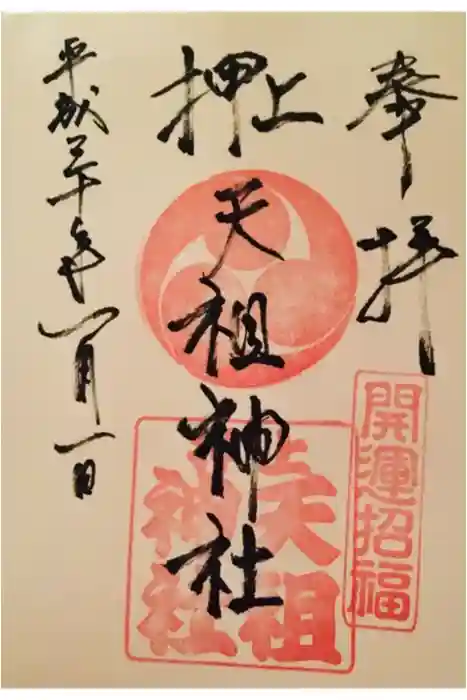 奉拝
開運招福
押上
天祖神社
天祖
神社
平成三十年一月一日